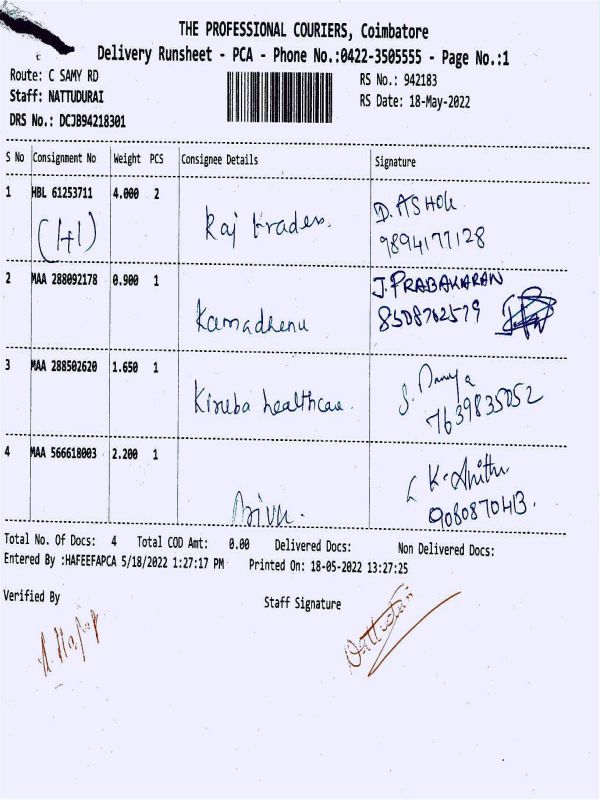 THE PROFESSIONAL COURIERS, Coimbatore
Delivery Runsheet - PCA - Phone No.:0422-3505555 - Page No.:1
Route: C SAMY RD
RS No.: 942183
Staff: NATTUDURAI
RS Date: 18-May-2022
DRS No.: DCJB94218301
S No Consignment No Weight PCS Consignee Details Signature
1 HBL 61253711 4.000 2
(1+1) Raj traders. D. ASHOK
9894177128
2 MAA 288092178 0.900 1 J. PRABAKARAN
Kamadhenu 8508702579
3 MAA 288502620 1.650 1
Kiruba healthcare. S. Divya
7639835052
4 MAA 566618003 2.200 1
9080870413.
Total No. Of Docs: 4 Total COD Amt: 0.00 Delivered Docs: Non Delivered Docs:
Entered By :HAFEEFAPCA 5/18/2022 1:27:17 PM Printed On: 18-05-2022 13:27:25
Verified By Staff Signature